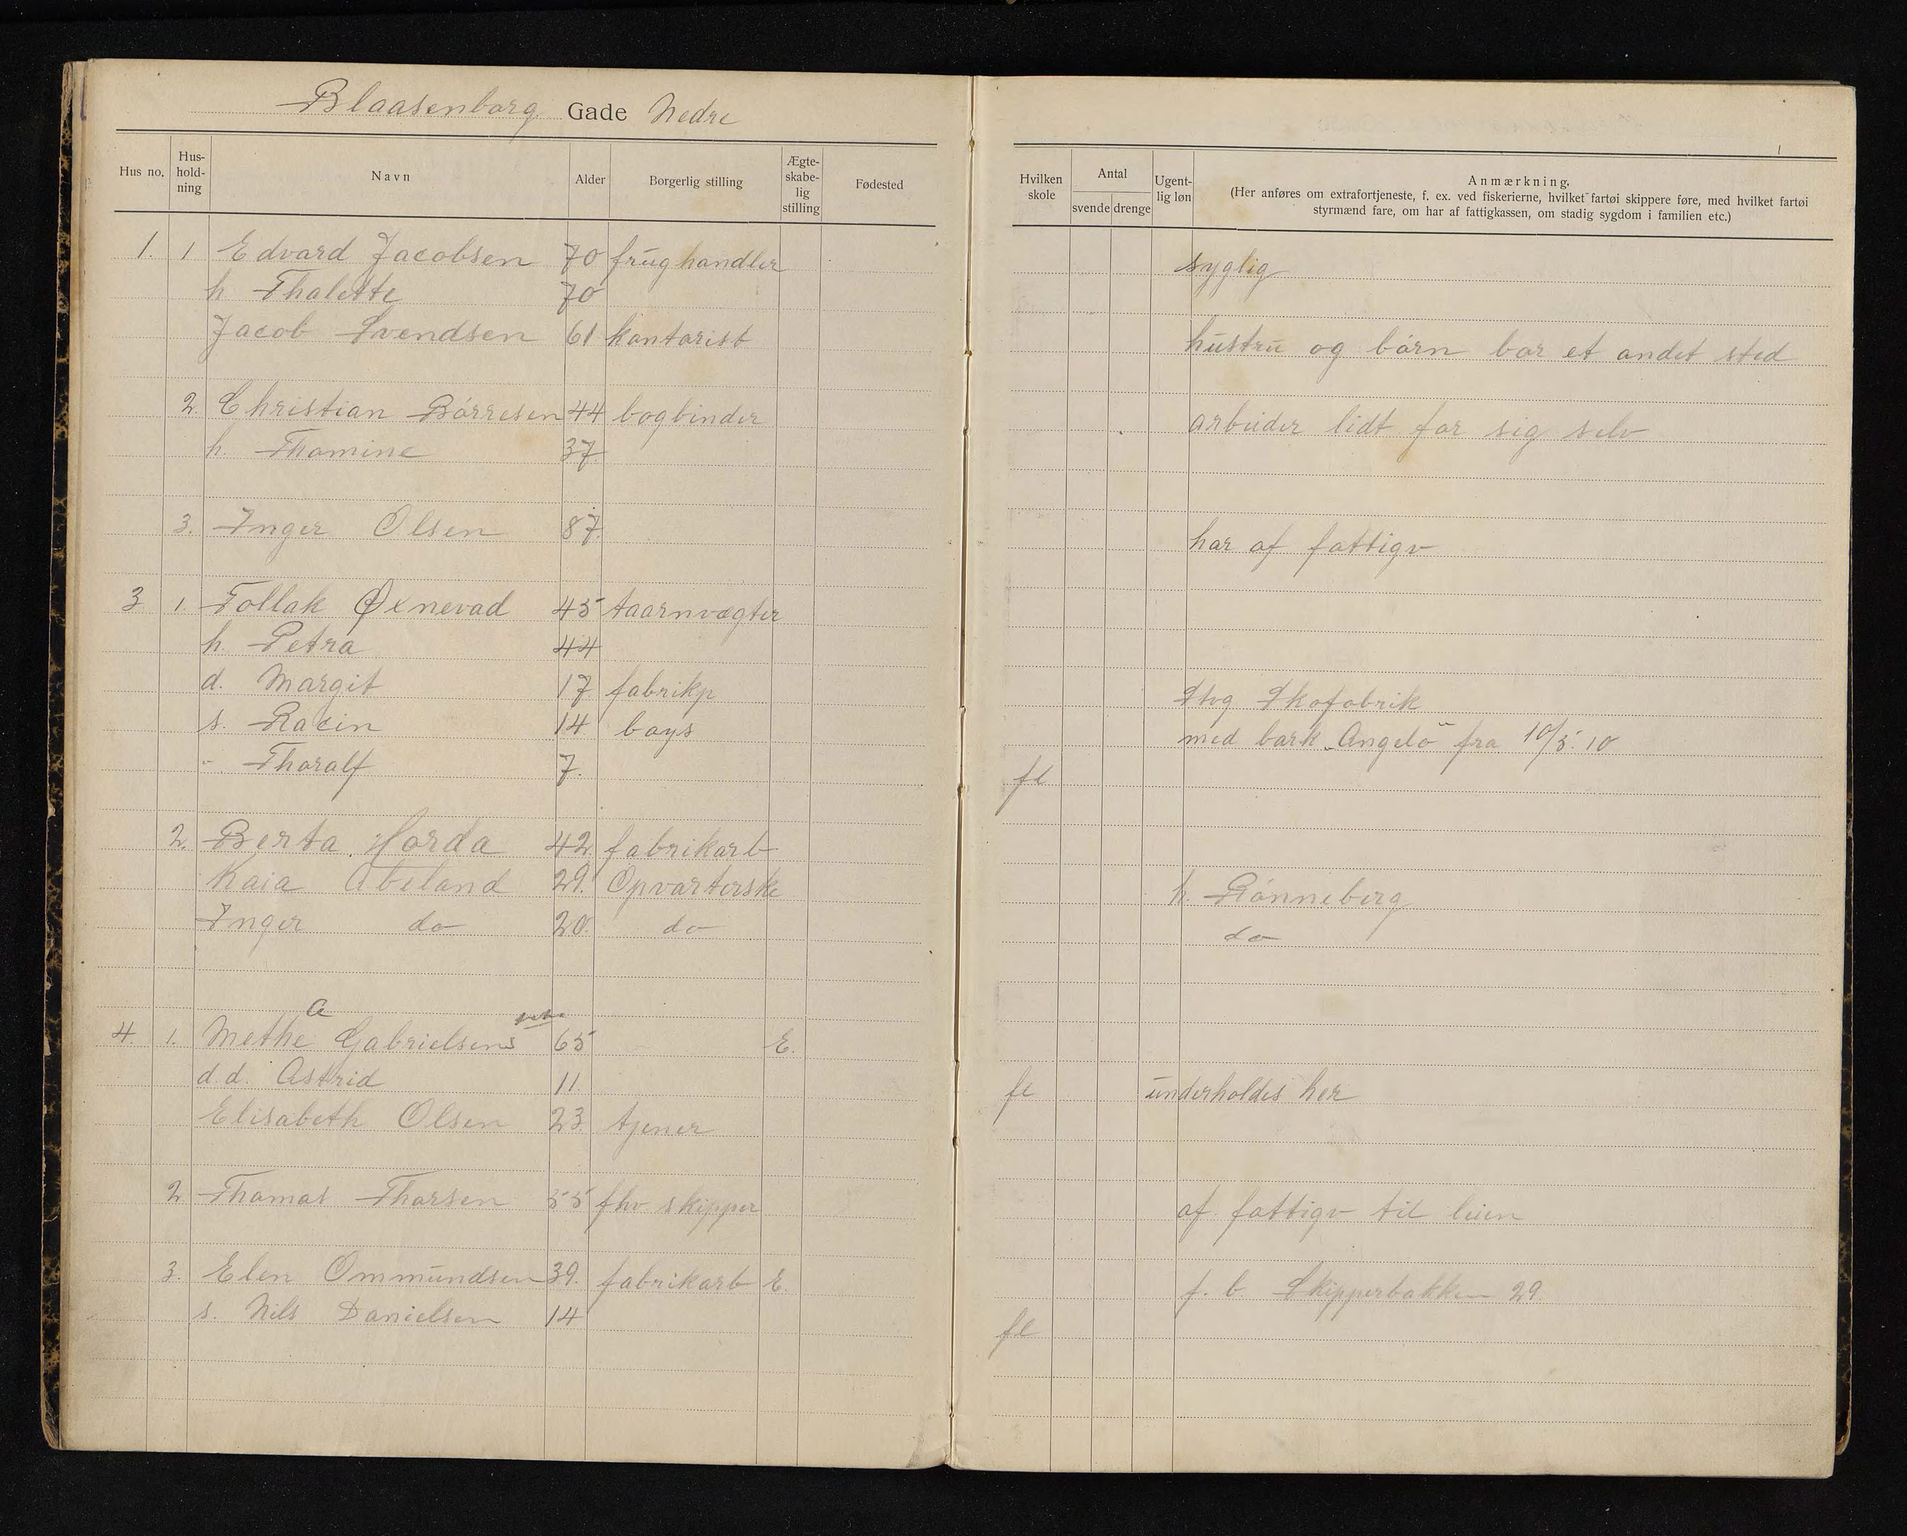 Blaasenborg Gade Nedre
Hus no. Hus-hold-ning Navn Alder Borgerlig stilling Ægte-skabe-lig stilling Fødested Hvilken skole Antal svende drenge Ugent-lig løn Anmærkning.
(Her anføres om extrafortjeneste, f. ex. ved fiskerierne, hvilket fartøi skippere føre, med hvilket fartøi
styrmænd fare, om har af fattigkassen, om stadig sygdom i familien etc.)
1. 1 Edvard Jacobsen 70 frughandler syglig
h Thalette 70
Jacob Svendsen 61 kontorist hustru og børn bor et andet sted
2. Christian Børresen 44 bogbinder arbeider lidt for sig selv
h. Thomine 37.
3. Inger Olsen 87. har af fattigv
3 1. Tollak Øxnevad 45 taarnvægter
h. Petra 44
d. Margit 17. fabrikp Stvg Skofabrik
s. Racin 14 boys med bark „Angelo“ fra 10/5. 10
" Thoralf 7. fl
2. Berta Horda 42. fabrikarb
Kaia Abeland 29. Opvarterske h. Rønneberg
Inger do 20. do do
4. 1. Methe A Gabrielsens 65 E.
d.d. Astrid 11. fl underholdes her
Elisabeth Olsen 23 tjener
2 Thomas Thorsen 55 fhv skipper af fattigv til leien
3. Elen Ommundsen 39. fabrikarb E. f. b. Skipperbakken 29.
s. Nils Danielsen 14 fl